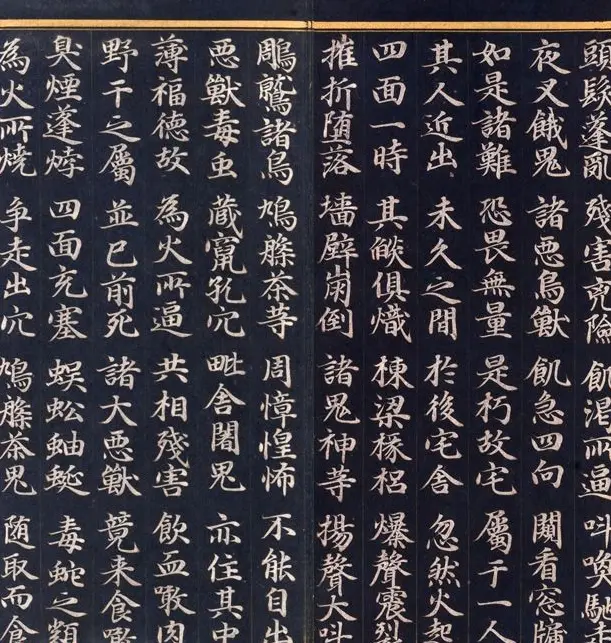 頭髮蓬亂 殘害兇險 飢渴所逼 叫喚馳走
夜叉餓鬼 諸悪鳥獸 飢急四向 闚看窓牖
如是諸難 恐畏無量 是朽故宅 屬于一人
其人近出 未久之間 於後宅舍 忽然火起
四面一時 其焰俱熾 棟梁椽梠 爆聲震裂
摧折堕落 墻壁崩倒 諸鬼神等 揚聲大叫
鵰鷲諸鳥 鳩槃荼等 周慞惶怖 不能自出
悪獸毒虫 藏竄孔穴 毗舍闍鬼 亦住其中
薄福德故 為火所逼 共相殘害 飲血噉肉
野干之屬 並已前死 諸大悪獸 競来食噉
臭煙蓬㶿 四面充塞 蜈蚣蚰蜒 毒蛇之類
為火所燒 争走出穴 鳩槃荼鬼 随取而食